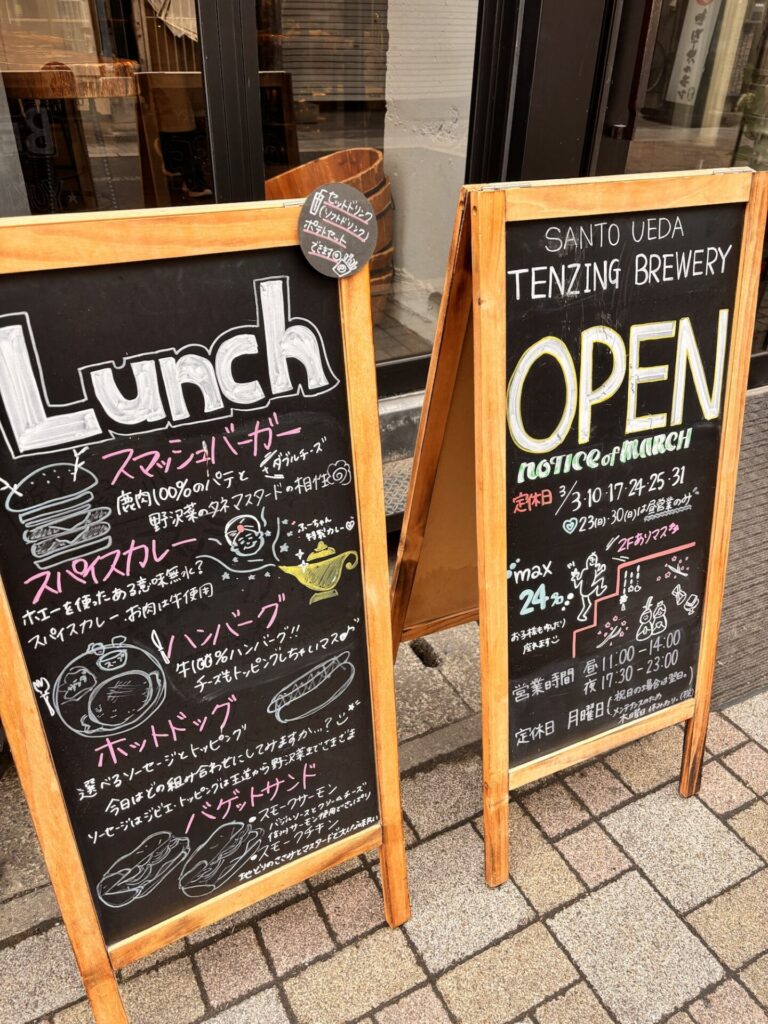 セットドリンク
(ソフトドリンク)
ポテトセット
できます
Lunch
スマッシュバーガー
鹿肉100%のパテと ダブルチーズ
野沢菜のタネマスタードの相性
スパイスカレー
ホエーを使ったある意味無水?
スパイスカレー お肉は牛使用
特製カレー
ハンバーグ
牛100%ハンバーグ!!
チーズもトッピングしちゃいマス
ホットドッグ
選べるソーセージとトッピング
今日はどの組み合わせにしてみますか…?
ソーセージはジビエ・トッピングは王道から野沢菜までさまざま
バゲットサンド
・スモークサーモン
バジルソースとクリームチーズ
信州サーモン使用でさっぱり
・スモークチキン
SANTO UEDA
TENZING BREWERY
OPEN
NOTICE of MARCH
定休日 3/3・10・17・24・25・31
23(日)・30(日)は昼営業のみ
2Fありマス
max
24名
お子様もゆったり
座れます
営業時間 昼 11:00-14:00
夜 17:30-23:00
定休日 月曜日(祝日の場合は翌日。
メンテナンスのため